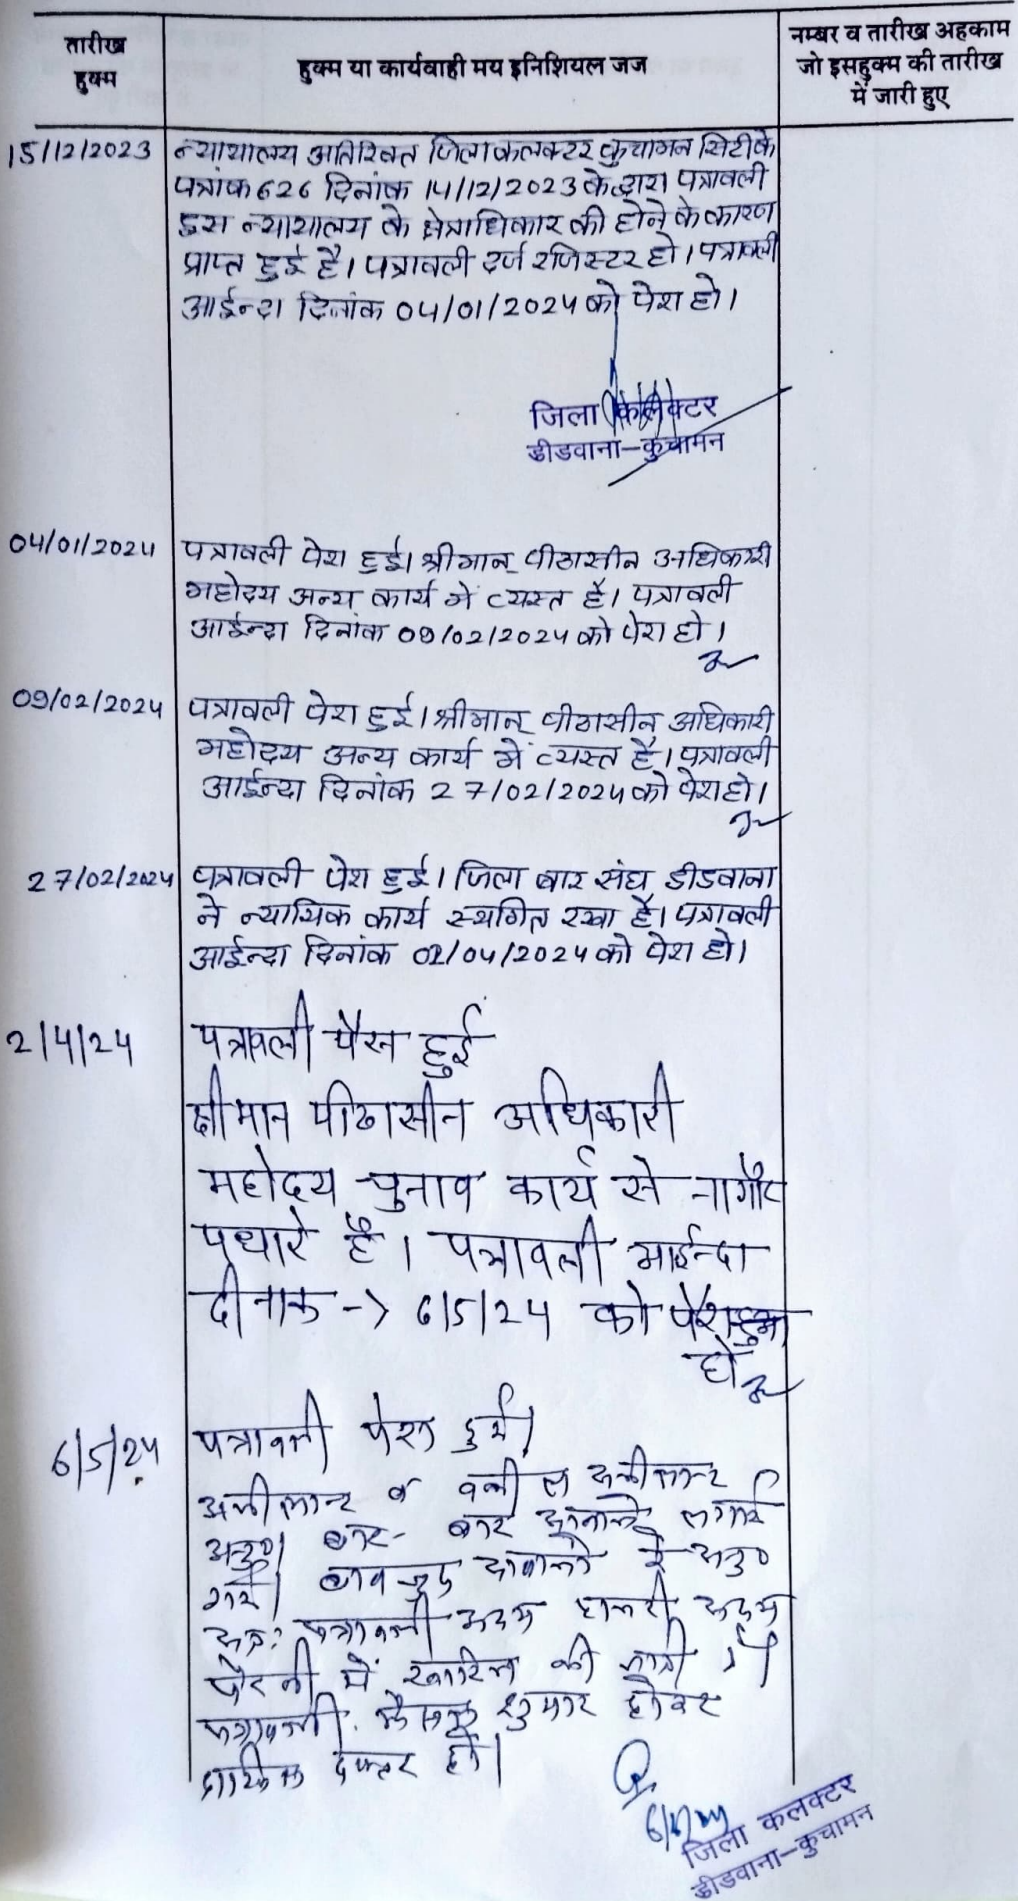 तारीख
हुक्म
हुक्म या कार्यवाही मय इनिशियल जज
नम्बर व तारीख अहकाम
जो इसहुक्म की तारीख
में जारी हुए
15/12/2023
न्यायालय अतिरिक्त जिला कलक्टर कुचामन सिटी के
पत्रांक 626 दिनांक 14/12/2023 के द्वारा पत्रावली
इस न्यायालय के क्षेत्राधिकार की होने के कारण
प्राप्त हुई है। पत्रावली दर्ज रजिस्टर हो। पत्रावली
आईन्दा दिनांक 04/01/2024 को पेश हो।
जिला कलेक्टर
डीडवाना-कुचामन
04/01/2024
पत्रावली पेश हुई। श्रीमान् पीठासीन अधिकारी
महोदय अन्य कार्य में व्यस्त है। पत्रावली
आईन्दा दिनांक 09/02/2024 को पेश हो।
09/02/2024
पत्रावली पेश हुई। श्रीमान् पीठासीन अधिकारी
महोदय अन्य कार्य में व्यस्त है। पत्रावली
आईन्दा दिनांक 27/02/2024 को पेश हो।
27/02/2024
पत्रावली पेश हुई। जिला बार संघ डीडवाना
ने न्यायिक कार्य स्थगित रखा है। पत्रावली
आईन्दा दिनांक 02/04/2024 को पेश हो।
2/4/24
पत्रावली पैस हुई
श्रीमान पीठासीन अधिकारी
महोदय चुनाव कार्य से नागौर
पधारे है। पत्रावली आईन्दा
दीनाक -> 6/5/24 को पेश
हो
6/5/24
पत्रावली पेश हुई।
अपीलान्ट व वकील अपीलान्ट
अनु०। बार-बार आवाजे लगाई
गई। बावजूद आवाजो के अनु०
अतः पत्रावली अदम हाजरी अदम
पैरवी में खारिज की जाती है।
पत्रावली फैसल शुमार होकर
दाखिल दफ्तर हो।
जिला कलक्टर
डीडवाना-कुचामन